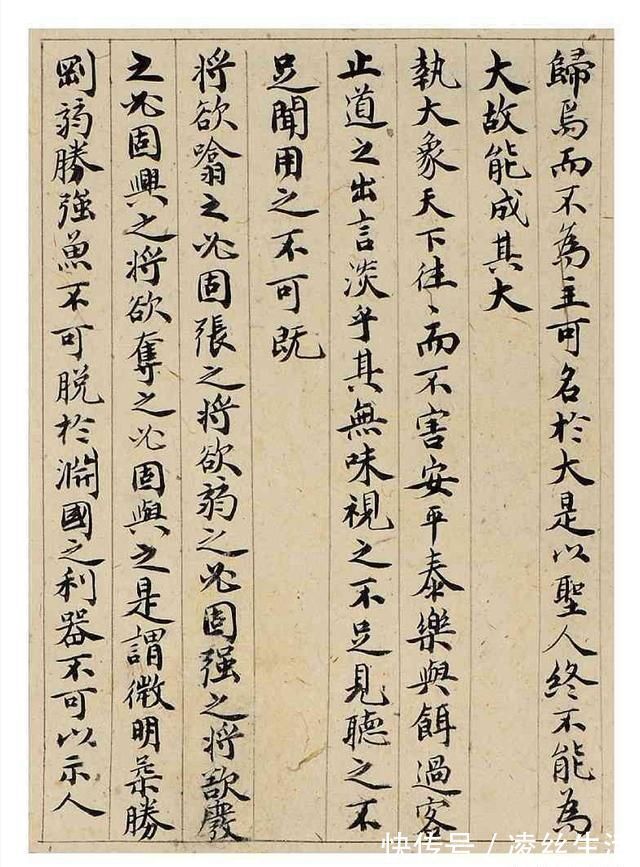 歸焉而不為主可名於大是以聖人終不能為
大故能成其大
執大象天下往〻而不害安平泰樂與餌過客
止道之出言淡乎其無味視之不足見聽之不
足聞用之不可既
將欲噏之必固張之將欲弱之必固强之將欲廢
之必固興之將欲奪之必固與之是謂微明柔勝
剛弱勝強魚不可脱於淵國之利器不可以示人
快传号/凌丝生活